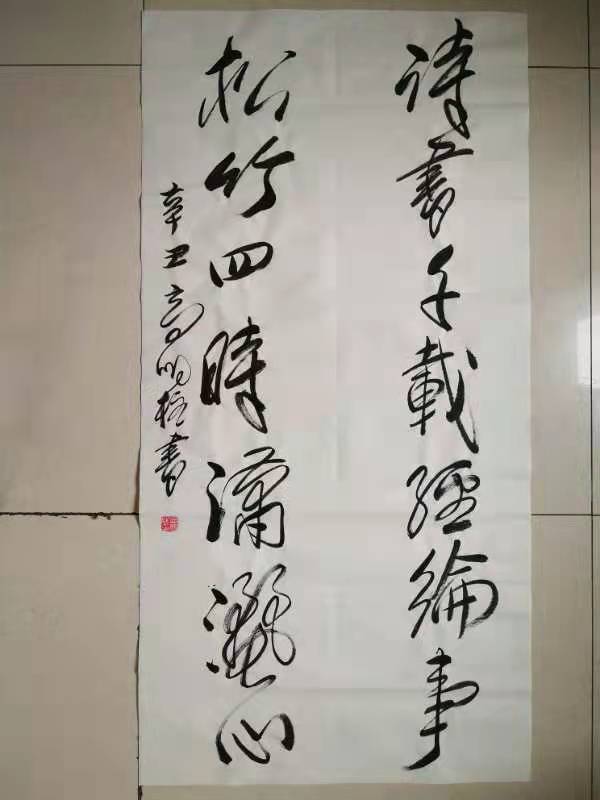 詩書千載經綸事
松竹四時瀟灑心
辛丑高明柱書